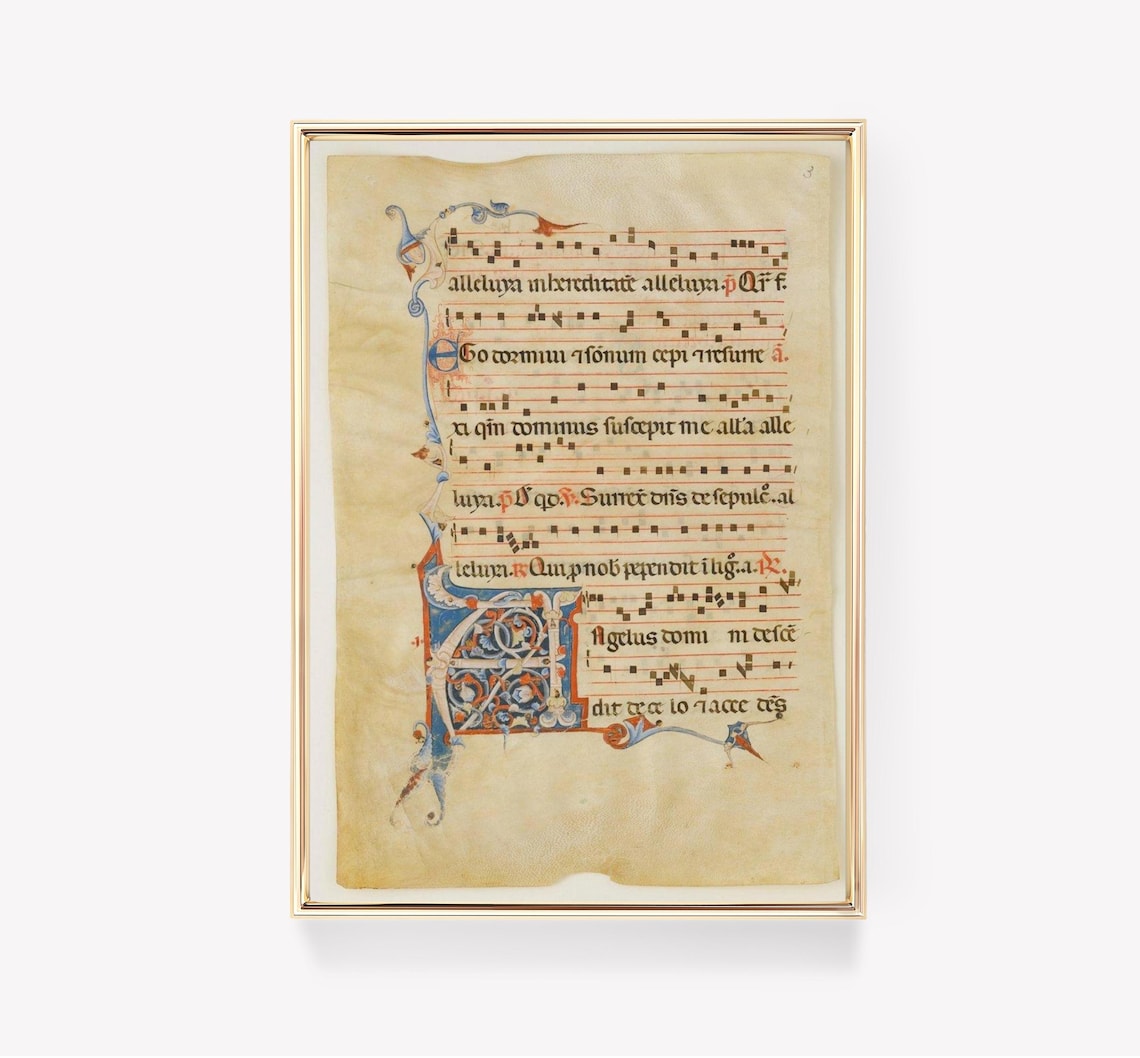 3
alleluya in hereditatē alleluya. p̄ Qr̄ f.
EGo dormiui ⁊ sōnum cepi ⁊ resurre ā.
xi qm̄ dominus suscepit me all'a alle
luya. p̄ C̄ qd. v̄. Surrex̄ dn̄s de sepulc̄o. al
leluya. R Qui p nob̄ pependit ī lig̊. a. R.
Angelus domi ni descē
dit de ce lo ⁊ acce dēs